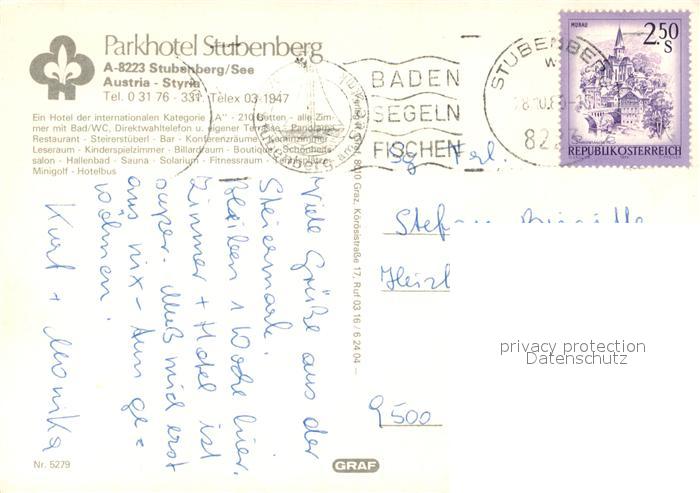 Parkhotel Stubenberg
A-8223 Stubenberg/See
Austria - Styria
Tel. 0 31 76 - 331, Telex 03-1947
Ein Hotel der internationalen Kategorie „A" - 210 Betten - alle Zim-
mer mit Bad/WC, Direktwahltelefon u. eigener Terrasse - Panorama
Restaurant - Steirerstüberl - Bar - Konferenzräume - Kaminzimmer
Leseraum - Kinderspielzimmer - Billardraum - Boutique - Schönheits-
salon - Hallenbad - Sauna - Solarium - Fitnessraum - Tennisplätze
Minigolf - Hotelbus
BADEN
SEGELN
FISCHEN
STUBENBERG
MURAU
2.50
S
REPUBLIK ÖSTERREICH
Viele Grüße aus der
Steiermark.
Bleiben 1 Woche hier.
Zimmer + Hotel ist
super. Muß mich erst
aus nix - tun ge=
wöhnen.
Kurt + Monika
8010 Graz, Körösistraße 17, Ruf 03 16 / 6 24 04
Frl.
9500
privacy protection
Datenschutz
Nr. 5279
GRAF